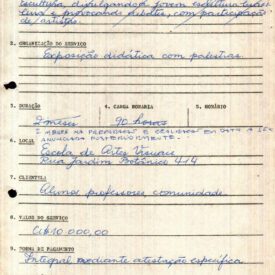 escultura, divulgando a jovem escultura
tiva e provocando debates, com participação
de artistas.
2. ORGANIZAÇÃO DO SERVIÇO
Exposição didática com palestras.
3. DURAÇÃO
4. CARGA HORÁRIA
5. HORÁRIO
2 meses
90 horas
6. LOCAL
Escola de Artes Visuais
Rua Jardim Botânico 414
7. CLIENTELA
Alunos professores comunidade
8. VALOR DO SERVIÇO
Cr$ 10.000,00
9. FORMA DE PAGAMENTO
Integral mediante atestação específica.